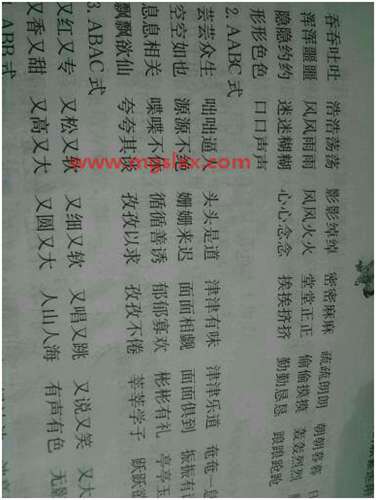 吞吞吐吐 浩浩荡荡 影影绰绰 密密麻麻 疏疏朗朗 朝朝暮暮
浑浑噩噩 风风雨雨 风风火火 堂堂正正 偷偷摸摸 轰轰烈烈
隐隐约约 迷迷糊糊 心心念念 挨挨挤挤 勤勤恳恳 踉踉跄跄
形形色色 口口声声
2. AABC 式
芸芸众生 咄咄逼人 头头是道 津津有味 津津乐道 奄奄一
空空如也 源源不 姗姗来迟 面面相觑 面面俱到 振振有
息息相关 喋喋不 循循善诱 郁郁寡欢 彬彬有礼 亭亭玉
飘飘欲仙 夸夸其 孜孜以求 孜孜不倦 莘莘学子 跃跃欲
3. ABAC 式
又红又专 又松又软 又细又软 又唱又跳 又说又笑 又大
又香又甜 又高又大 又圆又大 人山人海 有声有色 无
ABB 式
www.mgslxx.com